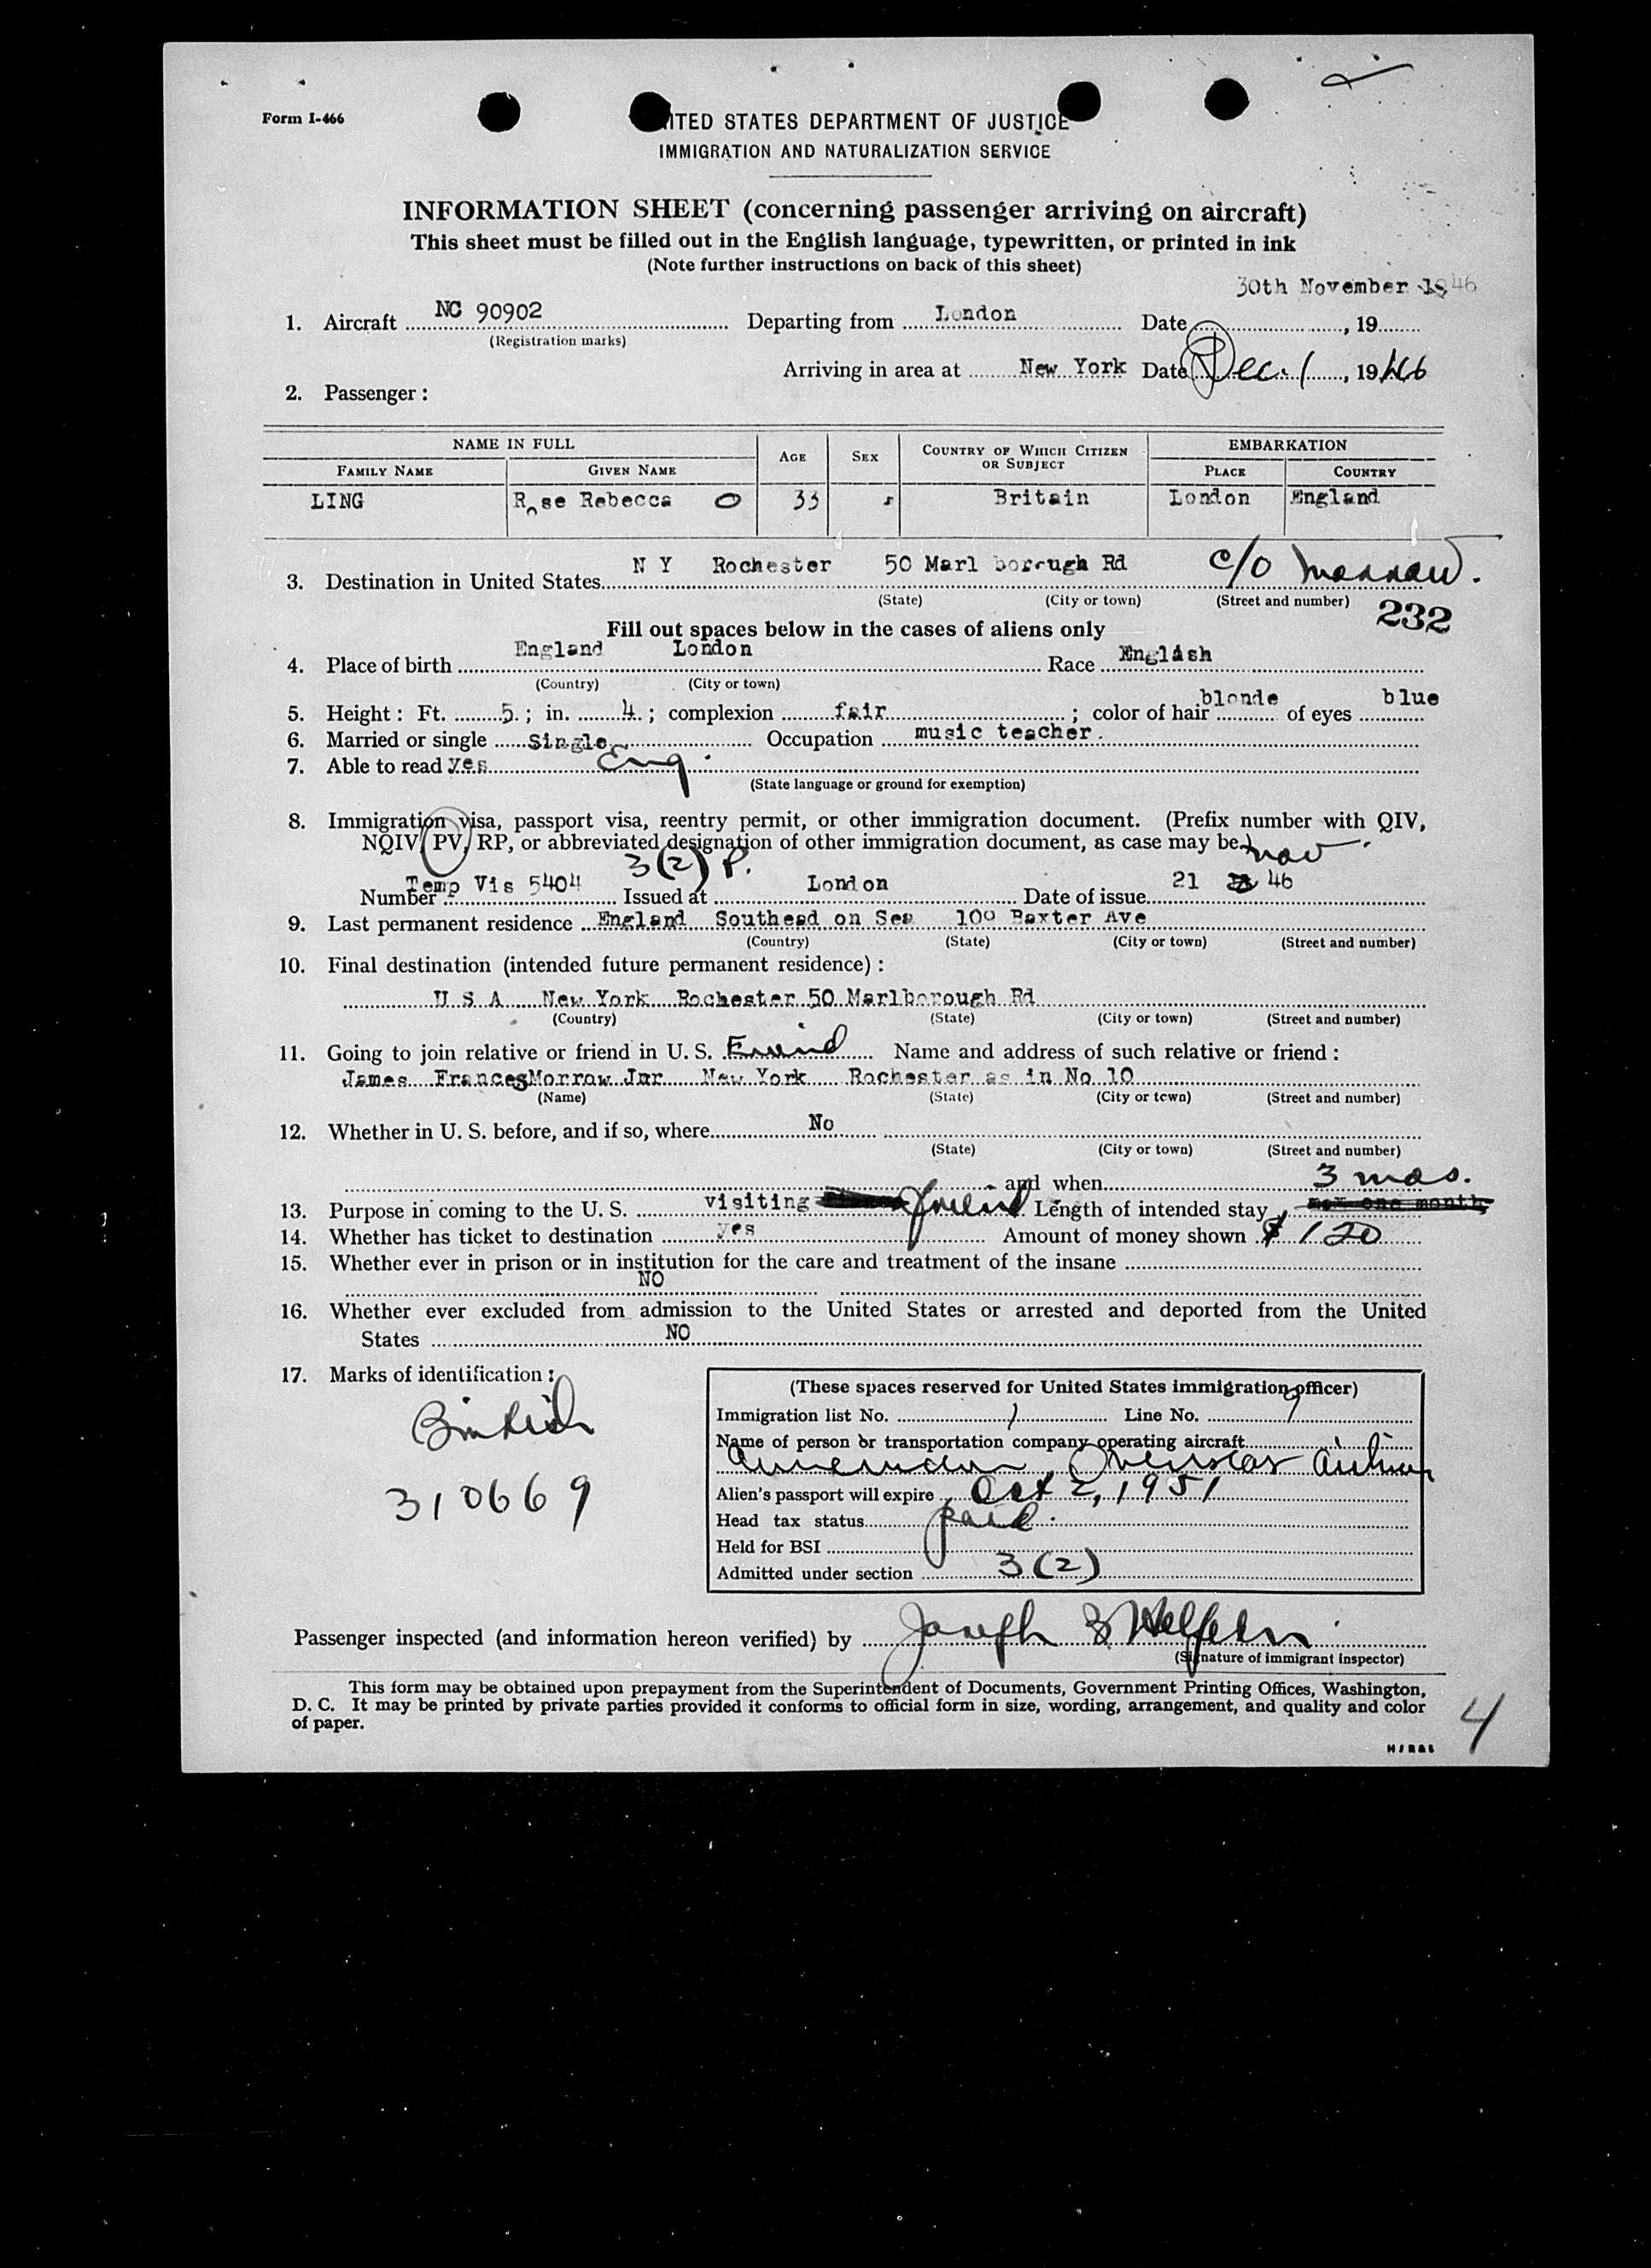 Form I-466
UNITED STATES DEPARTMENT OF JUSTICE
IMMIGRATION AND NATURALIZATION SERVICE
INFORMATION SHEET (concerning passenger arriving on aircraft)
This sheet must be filled out in the English language, typewritten, or printed in ink
(Note further instructions on back of this sheet)
30th November 1946
1. Aircraft NC 90902 Departing from London Date , 19
(Registration marks)
Arriving in area at New York Date Dec. 1, 1946
2. Passenger :
NAME IN FULL AGE SEX COUNTRY OF WHICH CITIZEN OR SUBJECT EMBARKATION
FAMILY NAME GIVEN NAME PLACE COUNTRY
LING Rose Rebecca 33 Britain London England
3. Destination in United States N Y Rochester 50 Marl borough Rd c/o Morrow.
(State) (City or town) (Street and number)
232
Fill out spaces below in the cases of aliens only
4. Place of birth England London Race English
(Country) (City or town)
5. Height : Ft. 5 ; in. 4 ; complexion fair ; color of hair blonde of eyes blue
6. Married or single Single Occupation music teacher.
7. Able to read yes Eng.
(State language or ground for exemption)
8. Immigration visa, passport visa, reentry permit, or other immigration document. (Prefix number with QIV,
NQIV, PV, RP, or abbreviated designation of other immigration document, as case may be.)
3(2) P. Nov
Number Temp Vis 5404 Issued at London Date of issue 21 46
9. Last permanent residence England Southead on Sea 100 Baxter Ave
(Country) (State) (City or town) (Street and number)
10. Final destination (intended future permanent residence) :
U S A New York Rochester 50 Marlborough Rd
(Country) (State) (City or town) (Street and number)
11. Going to join relative or friend in U. S. Friend Name and address of such relative or friend :
James FrancesMorrow Jnr New York Rochester as in No 10
(Name) (State) (City or town) (Street and number)
12. Whether in U. S. before, and if so, where No
(State) (City or town) (Street and number)
and when
3 mos.
13. Purpose in coming to the U. S. visiting friend Length of intended stay one month
14. Whether has ticket to destination yes Amount of money shown $ 120
15. Whether ever in prison or in institution for the care and treatment of the insane
NO
16. Whether ever excluded from admission to the United States or arrested and deported from the United
States NO
17. Marks of identification :
British
310669
(These spaces reserved for United States immigration officer)
Immigration list No. 1 Line No. 9
Name of person or transportation company operating aircraft
American Overseas Airlines
Alien's passport will expire Oct 2, 1951
Head tax status paid.
Held for BSI
Admitted under section 3(2)
Passenger inspected (and information hereon verified) by Joseph
(Signature of immigrant inspector)
This form may be obtained upon prepayment from the Superintendent of Documents, Government Printing Offices, Washington,
D. C. It may be printed by private parties provided it conforms to official form in size, wording, arrangement, and quality and color
of paper.
4